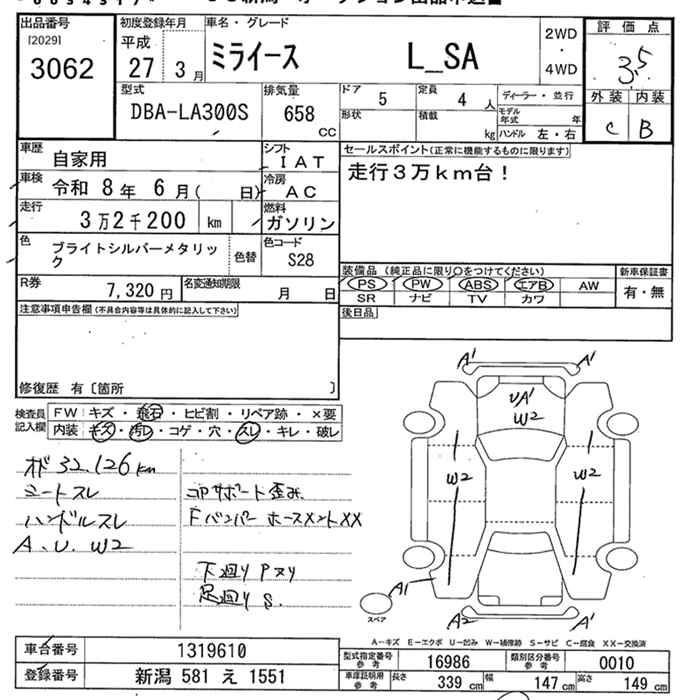 出品番号 初度登録年月 車名・グレード 2WD 評価点
[2029] 平成 ・ 3.5
3062 27 3月 ミライース L_SA 4WD 外装 内装
C B
型式 排気量 ドア 5 定員 4人 ディーラー・並行
DBA-LA300S 658 CC 形状 積載 kg モデル年式 年
ハンドル 左・右
車歴 自家用 シフト IAT セールスポイント(正常に機能するものに限ります)
車検 令和 8年 6月( 日) 冷房 AC 走行3万km台!
走行 3万2千200 km 燃料 ガソリン
色 ブライトシルバーメタリック 色替 色コード S28
装備品(純正品に限り〇をつけてください) 新車保証書
R券 7,320円 名変通知期限 月 日 PS PW ABS エアB AW 有・無
SR ナビ TV カワ
注意事項申告欄(不具合内容等は具体的に記入して下さい) 後日品
修復歴 有〔箇所 〕
検査員記入欄 FW キズ・飛石・ヒビ割・リペア跡・×要
内装 キズ・汚レ・コゲ・穴・スレ・キレ・破レ
オド 32,126km
シートスレ コアサポート歪み
ハンドルスレ Fバンパー ホースメントXX
A、U、W2
下廻りPヌリ
足廻りS.
A' A'
UA'
W2
W2 W2
A1
スペア A2 A'
A-キズ E-エクボ U-凹み W-補修跡 S-サビ C-腐食 XX-交換済
車台番号 1319610 型式指定番号 参考 16986 類別区分番号 参考 0010
登録番号 新潟 581 え 1551 車庫証明用 参考 長さ 339 cm 幅 147 cm 高さ 149 cm